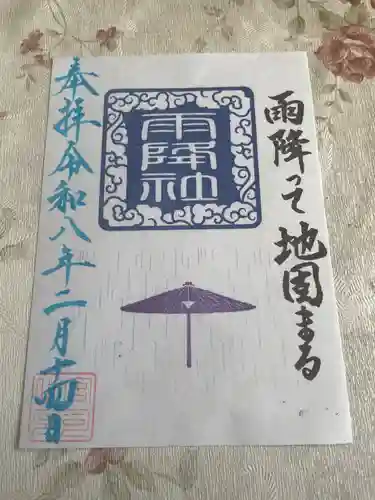 雨降って地固まる
雨降社
奉拝令和八年二月十四日